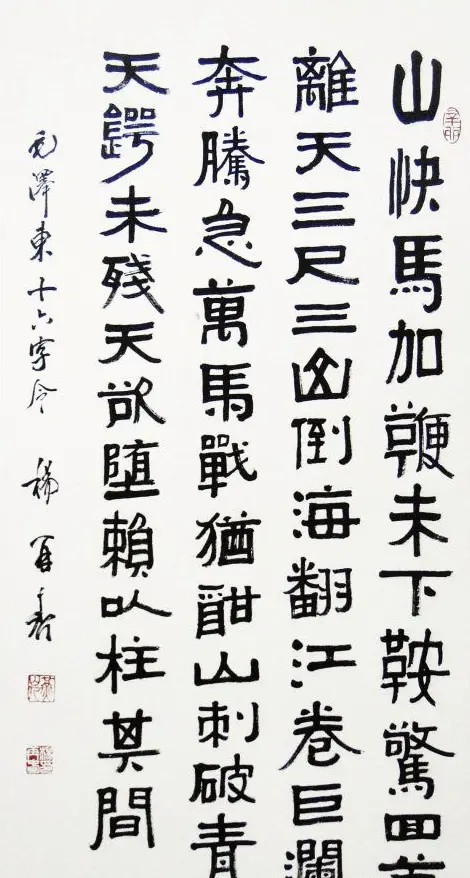 山快馬加鞭未下鞍驚回
離天三尺三山倒海翻江卷巨瀾
奔騰急萬馬戰猶酣山刺破青
天鍔未殘天欲墮賴以柱其間
毛澤東十六字令